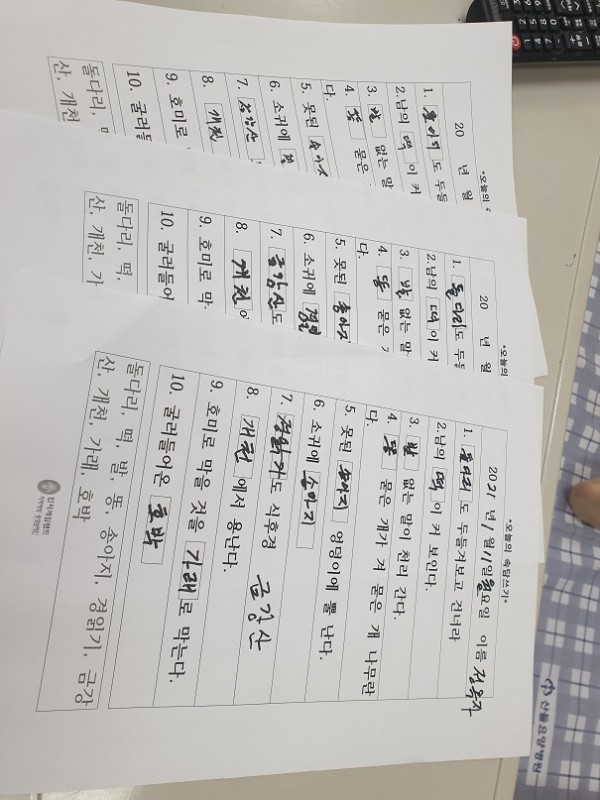 *오늘의
20 년 월
1. 돌다리 도 두들
2. 남의 떡 이 커
3. 발 없는 말
4. 똥 묻은
다.
5. 못된 송아지
6. 소귀에
7. 금강산
8. 개천
9. 호미로
10. 굴러들
돌다리,
산, 개천
*오늘의
20 년 월
1. 돌다리 도 두들
2. 남의 떡 이 커
3. 발 없는 말
4. 똥 묻은
다.
5. 못된 송아지
6. 소귀에 경읽
7. 금강산 도
8. 개천
9. 호미로 막
10. 굴러들어
돌다리, 떡,
산, 개천, 가
*오늘의 속담쓰기*
2021 년 1 월 11 일 월 요일 이름 정옥자
1. 돌다리 도 두들겨보고 건너라
2. 남의 떡 이 커 보인다.
3. 발 없는 말이 천리 간다.
4. 똥 묻은 개가 겨 묻은 개 나무란
다.
5. 못된 송아지 엉덩이에 뿔 난다.
6. 소귀에 송아지
7. 경읽기 도 식후경 금강산
8. 개천 에서 용난다.
9. 호미로 막을 것을 가래 로 막는다.
10. 굴러들어온 호박
돌다리, 떡, 발, 똥, 송아지, 경읽기, 금강
산, 개천, 가래, 호박
산들요양병원